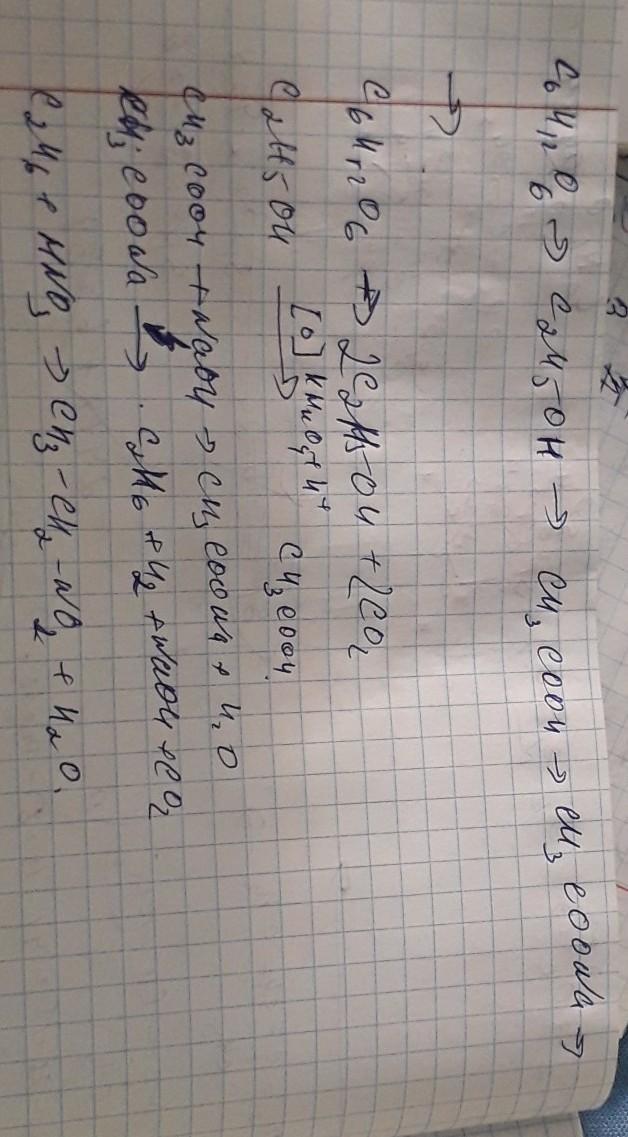 C6H12O6 → C2H5OH → CH3COOH → CH3COONa →
→
C6H12O6 → 2C2H5OH + 2CO2
C2H5OH [O] KMnO4 + H+ → CH3COOH.
CH3COOH + NaOH → CH3COONa + H2O
CH3COONa → C2H6 + H2 + NaOH + CO2
C2H6 + HNO3 → CH3-CH2-NO2 + H2O.